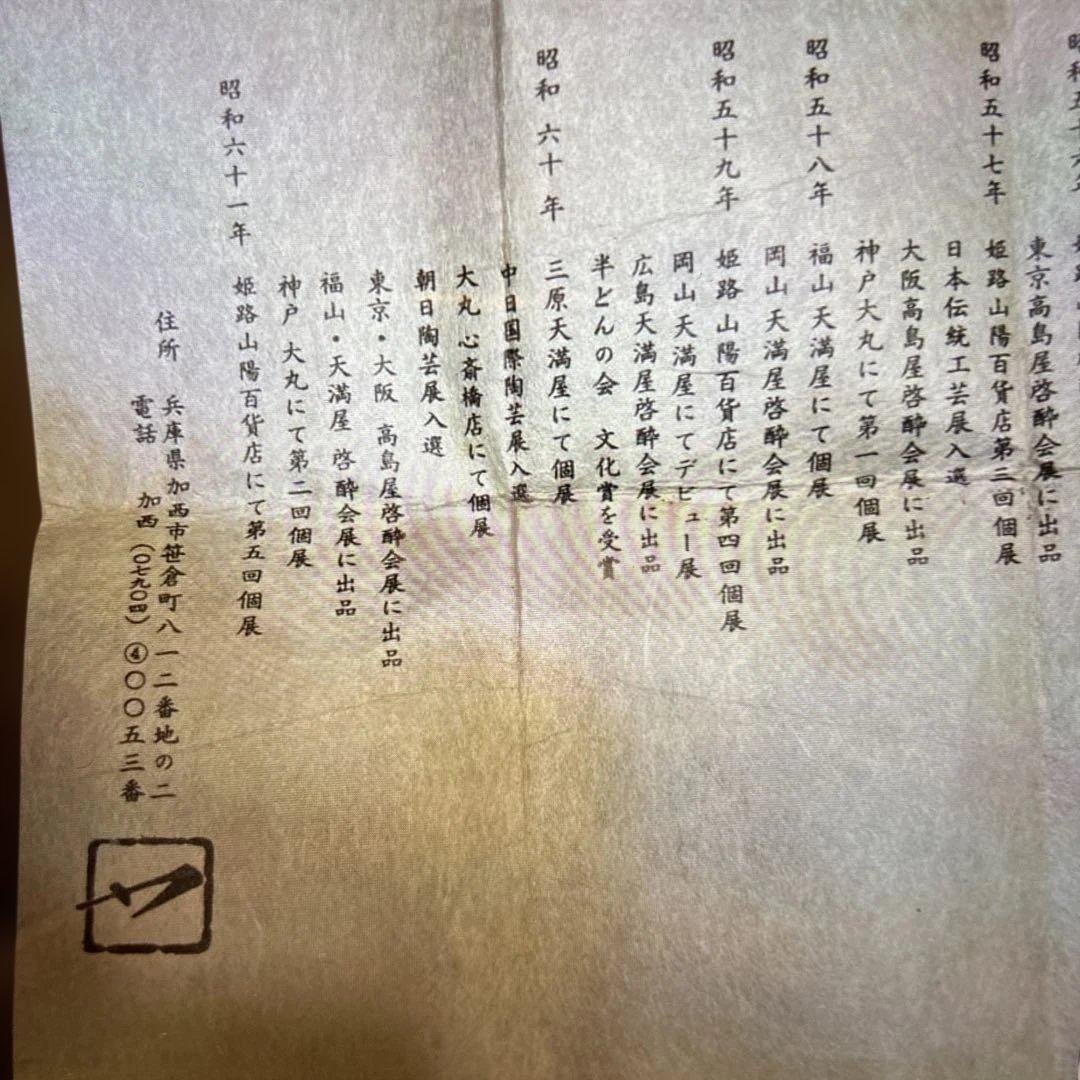 東京高島屋啓酔会展に出品
昭和五十七年 姫路山陽百貨店第三回個展
日本伝統工芸展入選
大阪高島屋啓酔会展に出品
神戸大丸にて第一回個展
昭和五十八年 福山天満屋にて個展
岡山天満屋啓酔会展に出品
昭和五十九年 姫路山陽百貨店にて第四回個展
岡山天満屋にてデビュー展
広島天満屋啓酔会展に出品
半どんの会 文化賞を受賞
昭和六十年 三原天満屋にて個展
中日国際陶芸展入選
大丸心斎橋店にて個展
朝日陶芸展入選
東京・大阪 高島屋啓酔会展に出品
福山・天満屋 啓酔会展に出品
神戸大丸にて第二回個展
昭和六十一年 姫路山陽百貨店にて第五回個展
住所 兵庫県加西市笹倉町八一二番地の二
電話 加西(〇七九〇四)④〇〇五三番